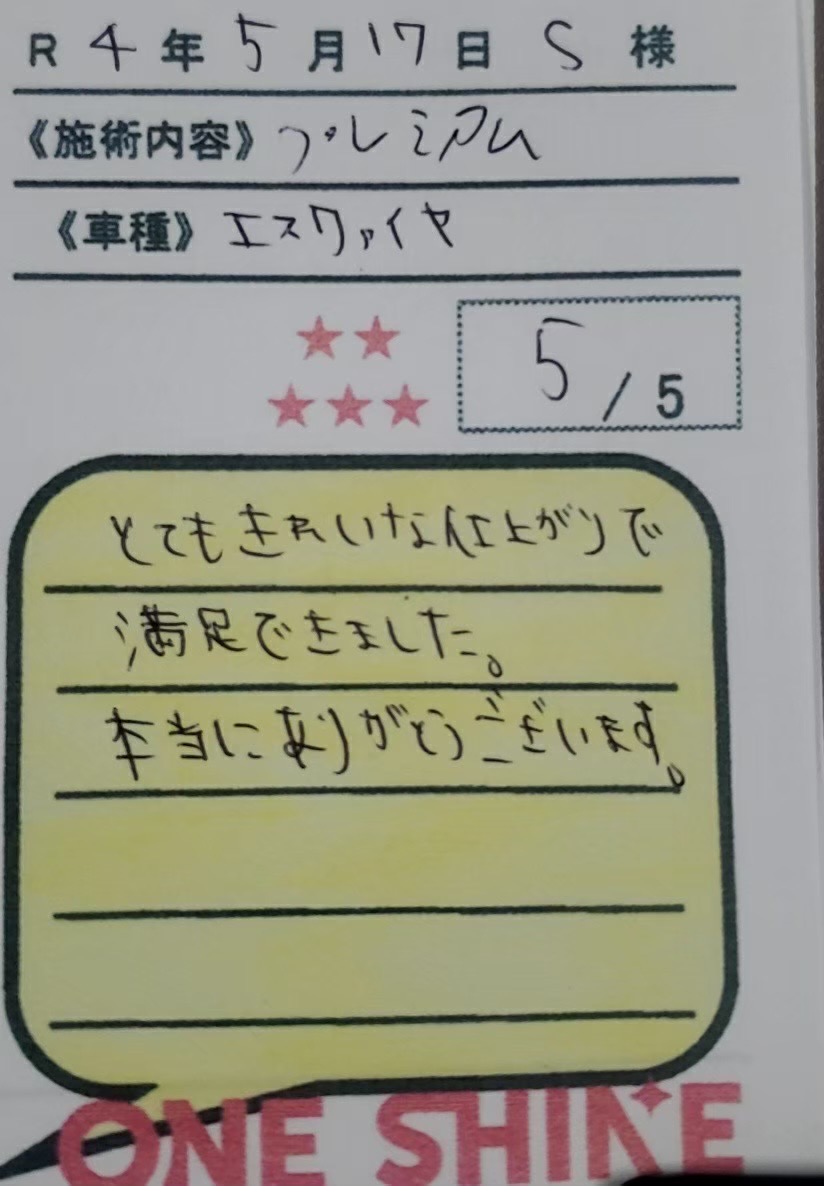 R 4 年 5 月 17 日 S 様
《施術内容》プレミアム
《車種》エスクァイヤ
★★
★★★
5 / 5
とてもきれいな仕上がりで
満足できました。
本当にありがとうございます。
ONE SHINE